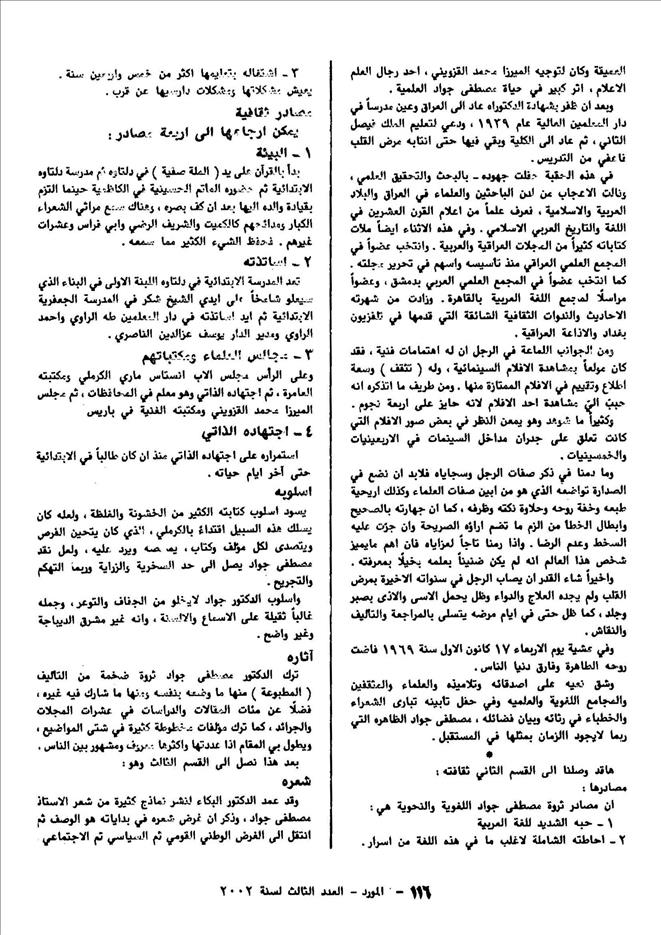 العميقة وكان لتوجيه الميرزا محمد القزويني ، احد رجال العلم
الاعلام ، اثر كبير في حياة مصطفى جواد العلمية .
وبعد ان ظفر بشهادة الدكتوراه عاد الى العراق وعين مدرساً في
دار المعلمين العالية عام ١٩٣٩ ، ودعي لتعليم الملك فيصل
الثاني ، ثم عاد الى الكلية وبقي فيها حتى انتابه مرض القلب
فاعفي من التدريس .
في هذه الحقبة حفلت جهوده – بالبحث والتحقيق العلمي ،
ونالت الاعجاب من لدن الباحثين والعلماء في العراق والبلاد
العربية والاسلامية ، فعرف علماً من اعلام القرن العشرين في
اللغة والتاريخ العربي الاسلامي . وفي هذه الاثناء ايضاً ملأت
كتاباته كثيراً من المجلات العراقية والعربية . وانتخب عضواً في
المجمع العلمي العراقي منذ تأسيسه واسهم في تحرير مجلته .
كما انتخب عضواً في المجمع العلمي العربي بدمشق ، وعضواً
مراسلًا لمجمع اللغة العربية بالقاهرة . وزادت من شهرته
الاحاديث والندوات الثقافية الشائقة التي قدمها في تلفزيون
بغداد والاذاعة العراقية .
ومن الجوانب اللماعة في الرجل ان له اهتمامات فنية ، فقد
كان مولعاً بمشاهدة الافلام السينمائية ، وله ( تثقف ) وسعة
اطلاع وتقييم في الافلام الممتازة منها . ومن طريف ما اتذكره انه
حبب اليّ مشاهدة احد الافلام لانه حايز على اربعة نجوم .
وكثيراً ما شوهد وهو يمعن النظر في بعض صور الافلام التي
كانت تعلق على جدران مداخل السينمات في الاربعينيات
والخمسينيات .
وما دمنا في ذكر صفات الرجل وسجاياه فلابد ان نضع في
الصدارة تواضعه الذي هو من ابين صفات العلماء وكذلك اريحية
طبعه وخفة روحه وحلاوة نكته وظرفه ، كما ان جهارته بالصحيح
وابطال الخطأ من الزم ما تضم اراؤه الصريحة وان جرت عليه
السخط وعدم الرضا . واذا رمنا تاجاً لمزاياه فان اهم مايميز
شخص هذا العالم انه لم يكن ضنيناً بعلمه بخيلًا بمعرفته .
واخيراً شاء القدر ان يصاب الرجل في سنواته الاخيرة بمرض
القلب ولم يجده العلاج والدواء وظل يحمل الاسى والاذى بصبر
وجلد ، كما ظل حتى في ايام مرضه يتسلى بالمراجعة والتأليف
والنقاش .
وفي عشية يوم الاربعاء ١٧ كانون الاول سنة ١٩٦٩ فاضت
روحه الطاهرة وفارق دنيا الناس .
وشق نعيه على اصدقائه وتلاميذه والعلماء والمثقفين
والمجامع اللغوية والعلميه وفي حفل تأبينه تبارى الشعراء
والخطباء في رثائه وبيان فضائله ، مصطفى جواد الظاهره التي
ربما لايجود الزمان بمثلها في المستقبل .
*
هاقد وصلنا الى القسم الثاني ثقافته :
مصادرها :
ان مصادر ثروة مصطفى جواد اللغوية والنحوية هي :
١ – حبه الشديد للغة العربية
٢ – احاطته الشاملة لاغلب ما في هذه اللغة من اسرار .
٣ – اشتغاله بتعليمها اكثر من خمس واربعين سنة .
يعيش مشكلاتها ومشكلات دارسيها عن قرب .
مصادر ثقافية
يمكن ارجاعها الى اربعة مصادر :
١ – البيئة
بدأ بالقرآن على يد ( الملة صفية ) في دلتاوه ثم مدرسة دلتاوه
الابتدائية ثم حضوره المآتم الحسينية في الكاظمية حينما التزم
بقيادة والده اليها بعد ان كف بصره ، وهناك سمع مراثي الشعراء
الكبار ومدائحهم كالكميت والشريف الرضي وابي فراس وعشرات
غيرهم . فحفظ الشيء الكثير مما سمعه .
٢ – اساتذته
تعد المدرسة الابتدائية في دلتاوه اللبنة الاولى في البناء الذي
سيعلو شامخاً على ايدي الشيخ شكر في المدرسة الجعفرية
الابتدائية ثم ايد اساتذته في دار المعلمين طه الراوي واحمد
الراوي ومدير الدار يوسف عزالدين الناصري .
٣ – مجالس العلماء ومكتباتهم
وعلى الرأس مجلس الاب انستاس ماري الكرملي ومكتبته
العامرة ، ثم اجتهاده الذاتي وهو معلم في المحافظات ، ثم مجلس
الميرزا محمد القزويني ومكتبته الفنية في باريس
٤ – اجتهاده الذاتي
استمراره على اجتهاده الذاتي منذ ان كان طالباً في الابتدائية
حتى آخر ايام حياته .
اسلوبه
يسود اسلوب كتابته الكثير من الخشونة والغلظة ، ولعله كان
يسلك هذه السبيل اقتداءً بالكرملي ، الذي كان يتحين الفرص
ويتصدى لكل مؤلف وكتاب ، ويرد عليه ، ولعل نقد
مصطفى جواد يصل الى حد السخرية والزراية وربما التهكم
والتجريح .
واسلوب الدكتور جواد لايخلو من الجفاف والتوعر ، وجمله
غالباً ثقيلة على الاسماع والالسنة ، وانه غير مشرق الديباجة
وغير واضح .
آثاره
ترك الدكتور مصطفى جواد ثروة ضخمة من التأليف
( المطبوعة ) منها ما وضعه بنفسه ومنها ما شارك فيه غيره ،
فضلًا عن مئات المقالات والدراسات في عشرات المجلات
والجرائد ، كما ترك مؤلفات مخطوطة كثيرة في شتى المواضيع ،
ويطول بي المقام اذا عددتها واكثرها معروف ومشهور بين الناس .
بعد هذا نصل الى القسم الثالث وهو :
شعره
وقد عمد الدكتور البكاء لنشر نماذج كثيرة من شعر الاستاذ
مصطفى جواد ، وذكر ان غرض شعره في بداياته هو الوصف ثم
انتقل الى الغرض الوطني القومي ثم السياسي ثم الاجتماعي .
١١٦ – المورد – العدد الثالث لسنة ٢٠٠٢